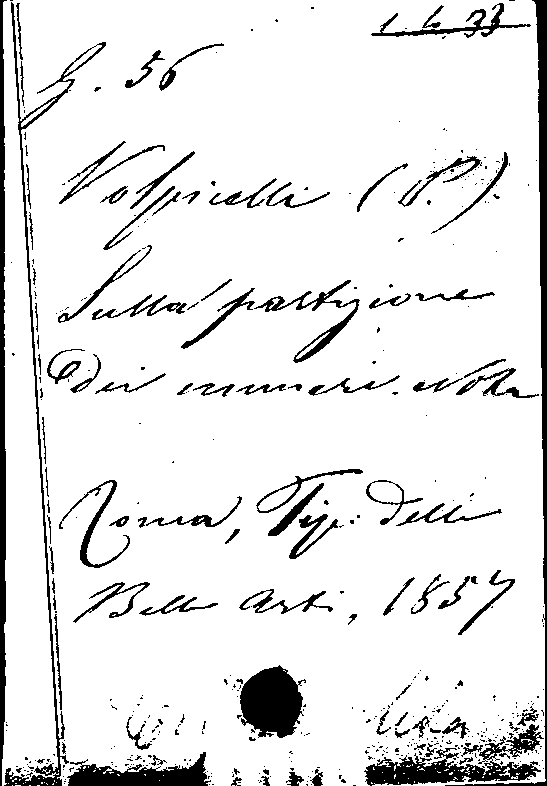 1. 6. 33
G. 56
Volpicelli (P.).
Sulla partizione
dei numeri. Nota
Roma, Tip. delle
Belle Arti, 1857